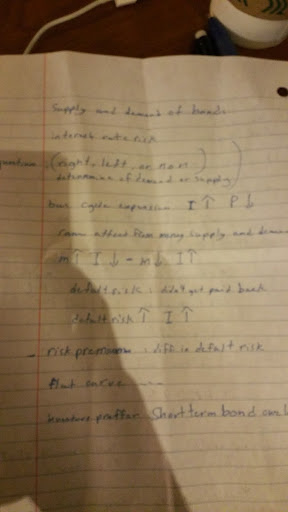 Supply and demand of bonds
interest rate risk
question : (right, left, or non
determine of demand or supply)
bus cycle expansion I ↑ P ↓
same affect from money supply and deman
m ↑ I ↓ - m ↓ I ↑
default risk : didn't get paid back
default risk ↑ I ↑
- risk premium : diff in default risk
flat curve ---
investors preffer Short term bond